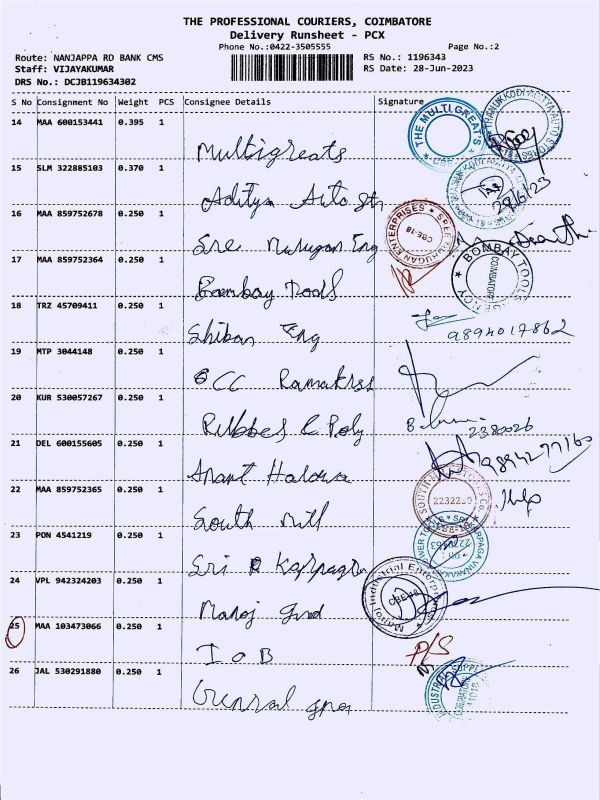 THE PROFESSIONAL COURIERS, COIMBATORE
Delivery Runsheet - PCX
Phone No.:0422-3505555
Page No.:2
Route: NANJAPPA RD BANK CMS
RS No.: 1196343
Staff: VIJAYAKUMAR
RS Date: 28-Jun-2023
DRS No.: DCJB119634302
S No Consignment No Weight PCS Consignee Details Signature
14 MAA 600153441 0.395 1
Multigreats
THE MULTI GREATS
15 SLM 322885103 0.370 1
Aditya Auto
29/6/23
16 MAA 859752678 0.250 1
Sre Murugan Eng
SREE MURUGAN ENTERPRISES
CBE-18
17 MAA 859752364 0.250 1
Bombay Tools
BOMBAY TOOLS
COIMBATORE
18 TRZ 45709411 0.250 1
Shiban Eng
9894017862
19 MTP 3044148 0.250 1
CC Ramakrss
20 KUR 530057267 0.250 1
Rubbes & Poly
2380026
21 DEL 600155605 0.250 1
Anant Haldwa
9894277160
22 MAA 859752365 0.250 1
South Mill
2232250
23 PON 4541219 0.250 1
Sri Karpaga
24 VPL 942324203 0.250 1
Manoj Ind
Manoj Industrial Enterprises
CBE-18
25 MAA 103473066 0.250 1
IOB
P/S
26 JAL 530291880 0.250 1